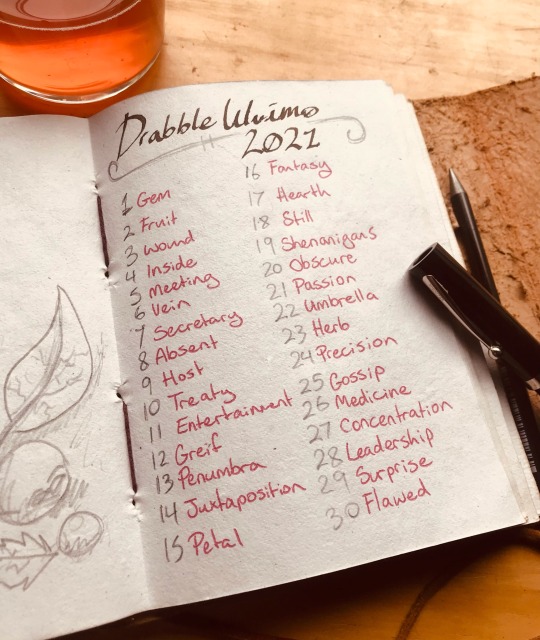 Drabble Wrimo
2021
1 Gem
2 Fruit
3 Wound
4 Inside
5 Meeting
6 Vein
7 Secretary
8 Absent
9 Host
10 Treaty
11 Entertainment
12 Greif
13 Penumbra
14 Juxtaposition
15 Petal
16 Fantasy
17 Hearth
18 Still
19 Shenanigans
20 Obscure
21 Passion
22 Umbrella
23 Herb
24 Precision
25 Gossip
26 Medicine
27 Concentration
28 Leadership
29 Surprise
30 Flawed